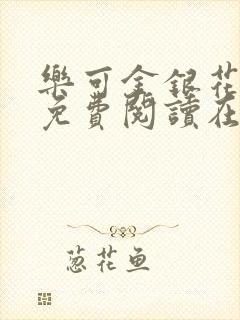 樂可金銀花
免費閱讀在
葱花鱼